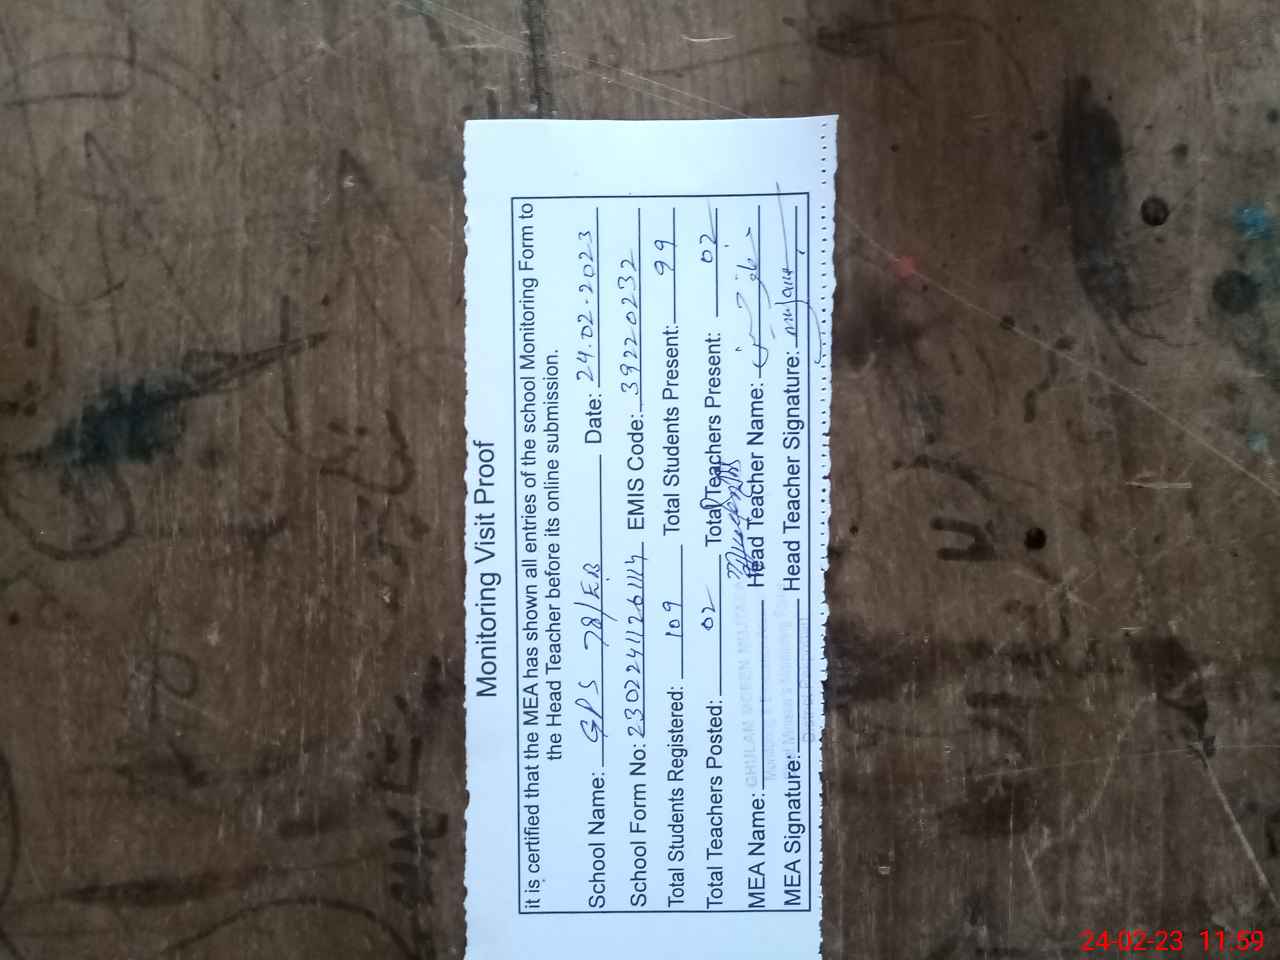 Monitoring Visit Proof
it is certified that the MEA has shown all entries of the school Monitoring Form to
the Head Teacher before its online submission.
School Name: GPS 78/EB Date: 24.02.2023
School Form No: 23022411261114 EMIS Code: 39220232
Total Students Registered: 109 Total Students Present: 99
Total Teachers Posted: 02 Total Teachers Present: 02
MEA Name: GHULAM Head Teacher Name:
MEA Signature: Head Teacher Signature:
24-02-23 11:59